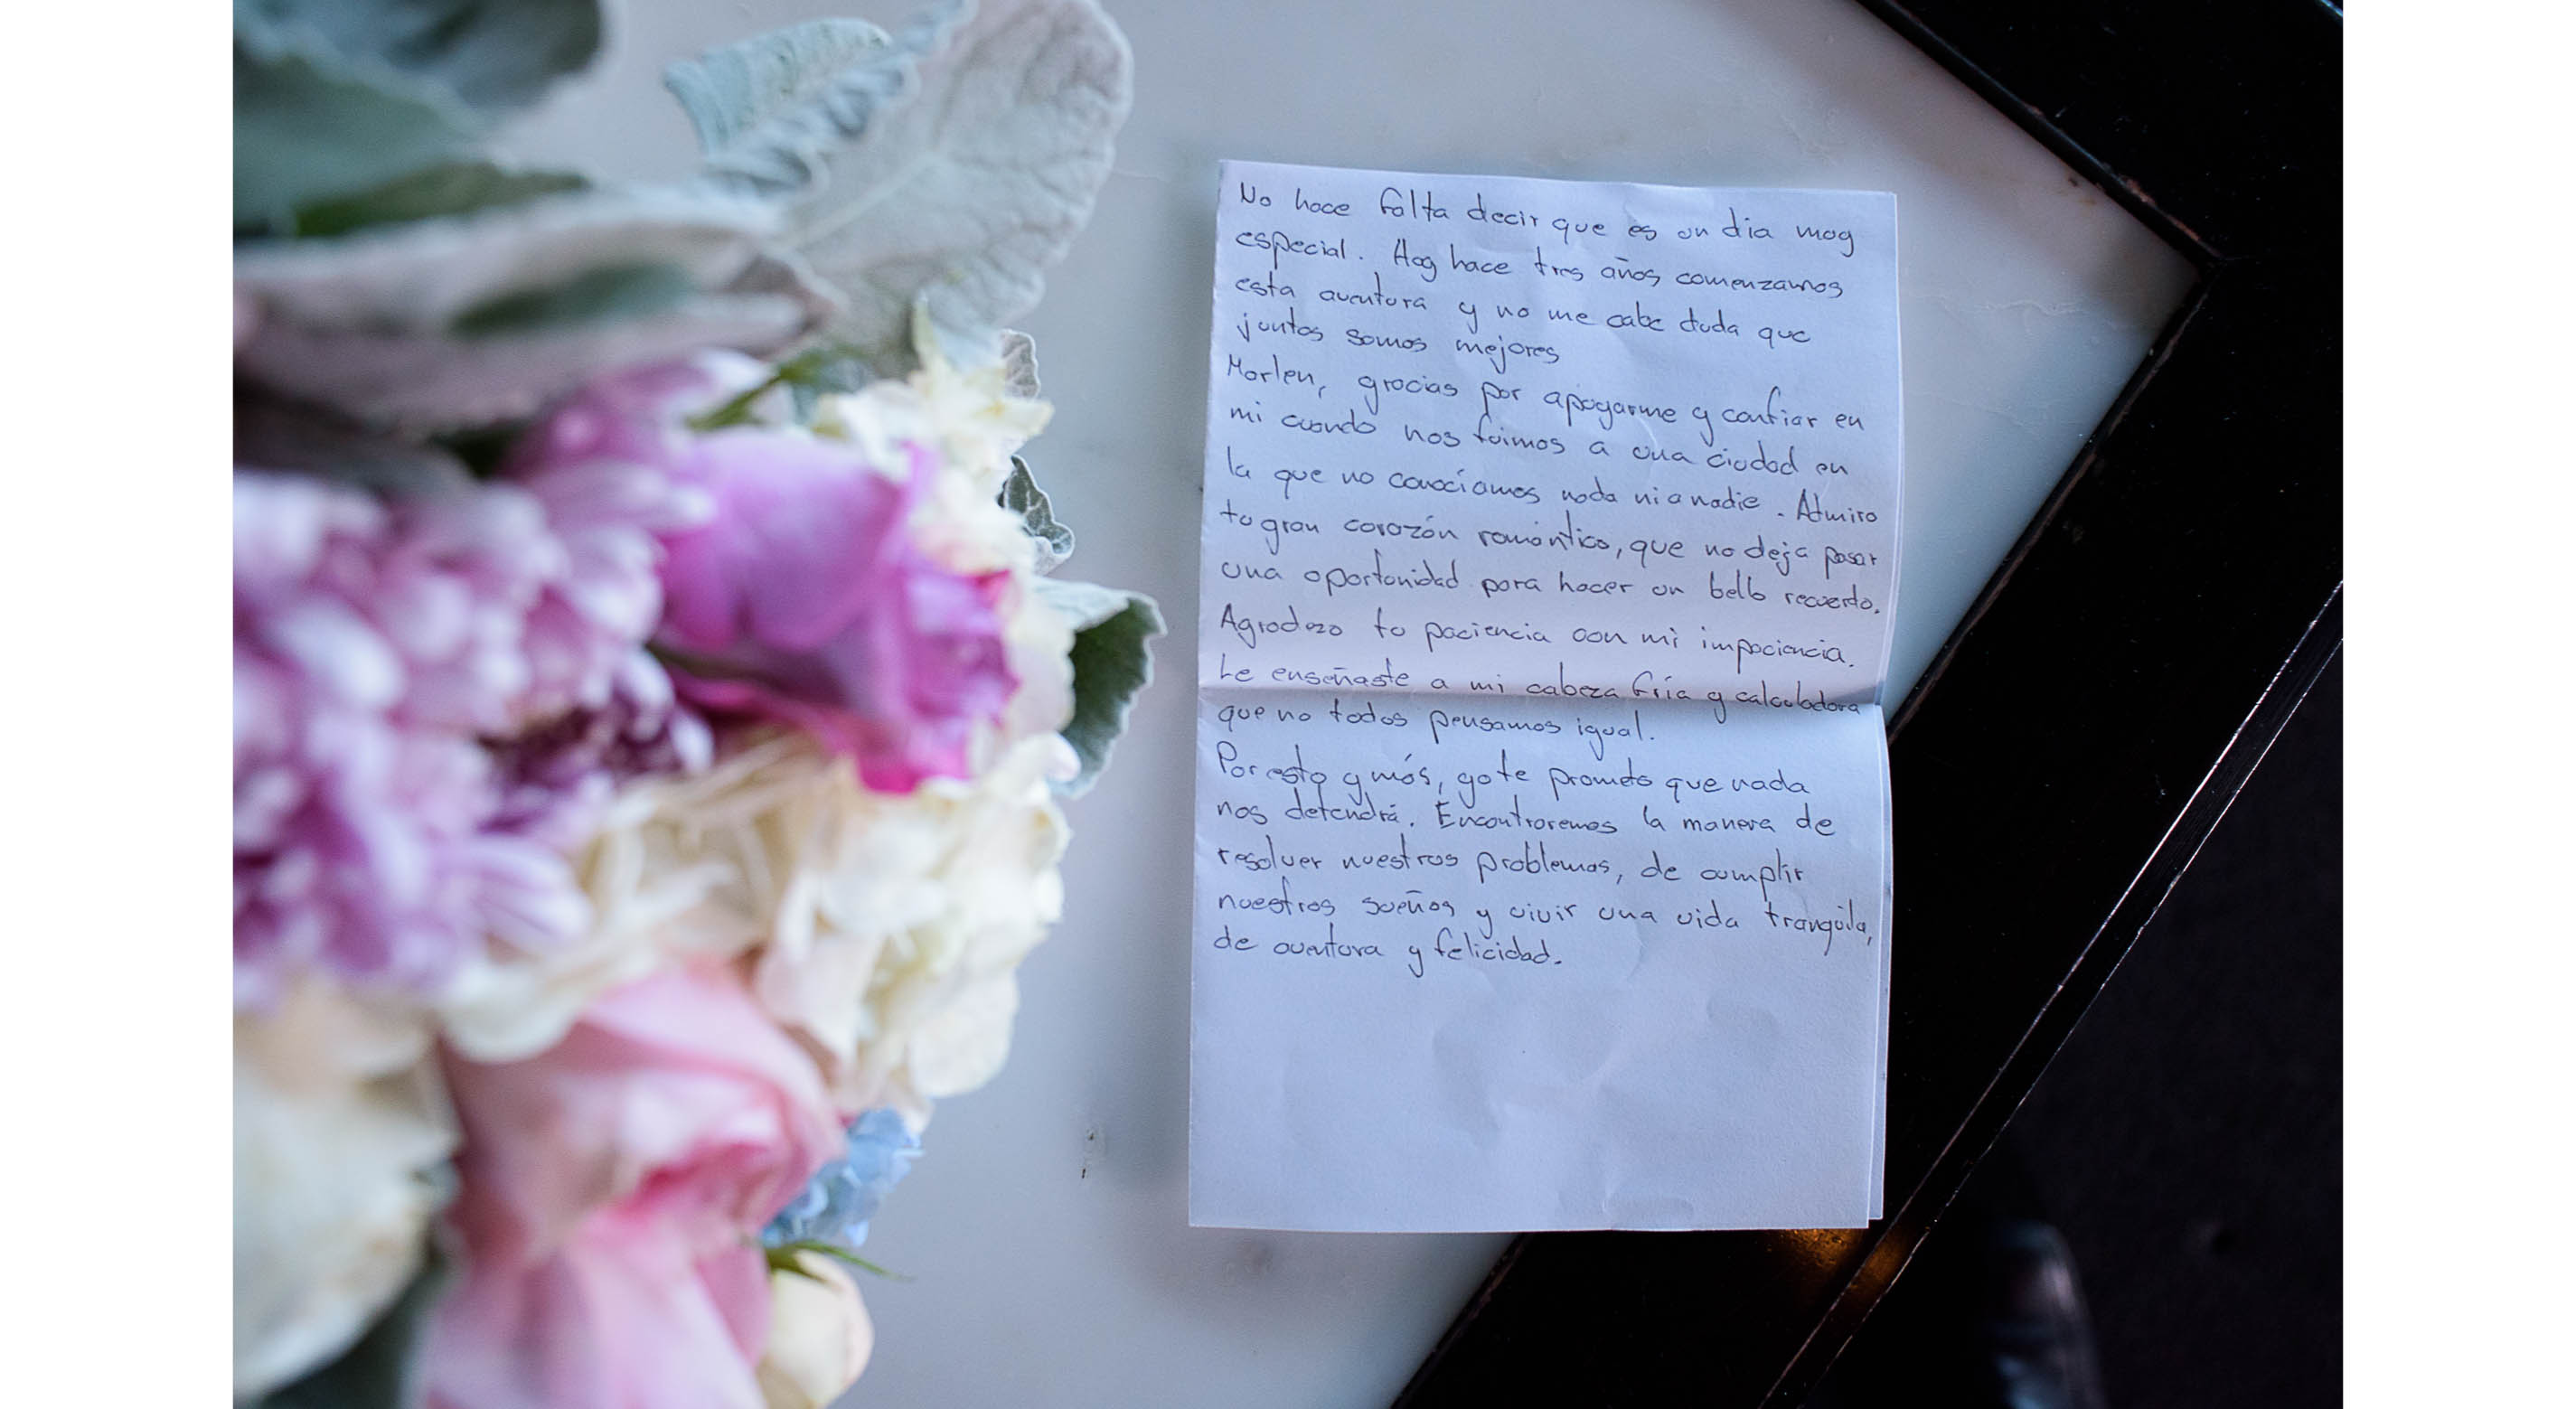 No hace falta decir que es un dia muy
especial. Hoy hace tres años comenzamos
esta aventura y no me cabe duda que
juntos somos mejores
Marlen, gracias por apoyarme y confiar en
mi cuando nos fuimos a una ciudad en
la que no conocíamos nada ni a nadie. Admiro
tu gran corazón romántico, que no deja pasar
una oportunidad para hacer un bello recuerdo.
Agradezo tu paciencia con mi impaciencia.
Le enseñaste a mi cabeza fría y calculadora
que no todos pensamos igual.
Por esto y más, yo te prometo que nada
nos detendrá. Encontraremos la manera de
resolver nuestros problemas, de cumplir
nuestros sueños y vivir una vida tranquila,
de aventura y felicidad.